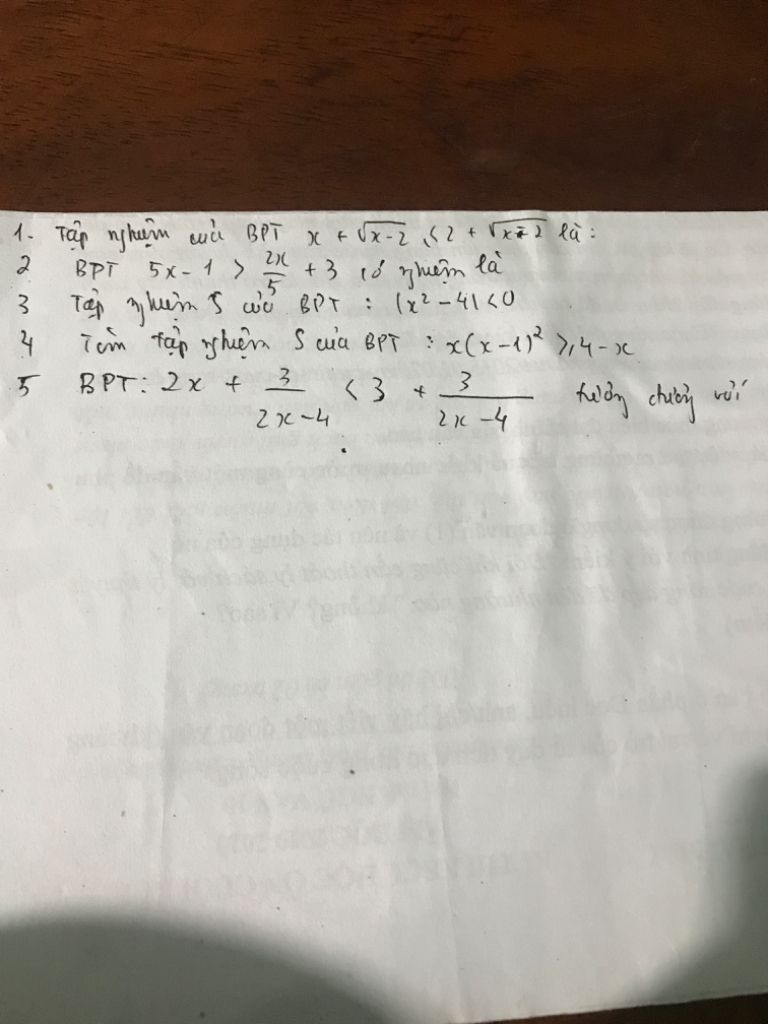 1. Tập nghiệm của BPT x + √x-2 ≤ 2 + √x-2 là:
2 BPT 5x - 1 > 2x/5 + 3 có nghiệm là
3 Tập nghiệm S của BPT : |x² - 4| < 0
4 Tìm tập nghiệm S của BPT : x(x-1)² ≥ 4 - x
5 BPT: 2x + 3/2x-4 < 3 + 3/2x-4 tương đương với